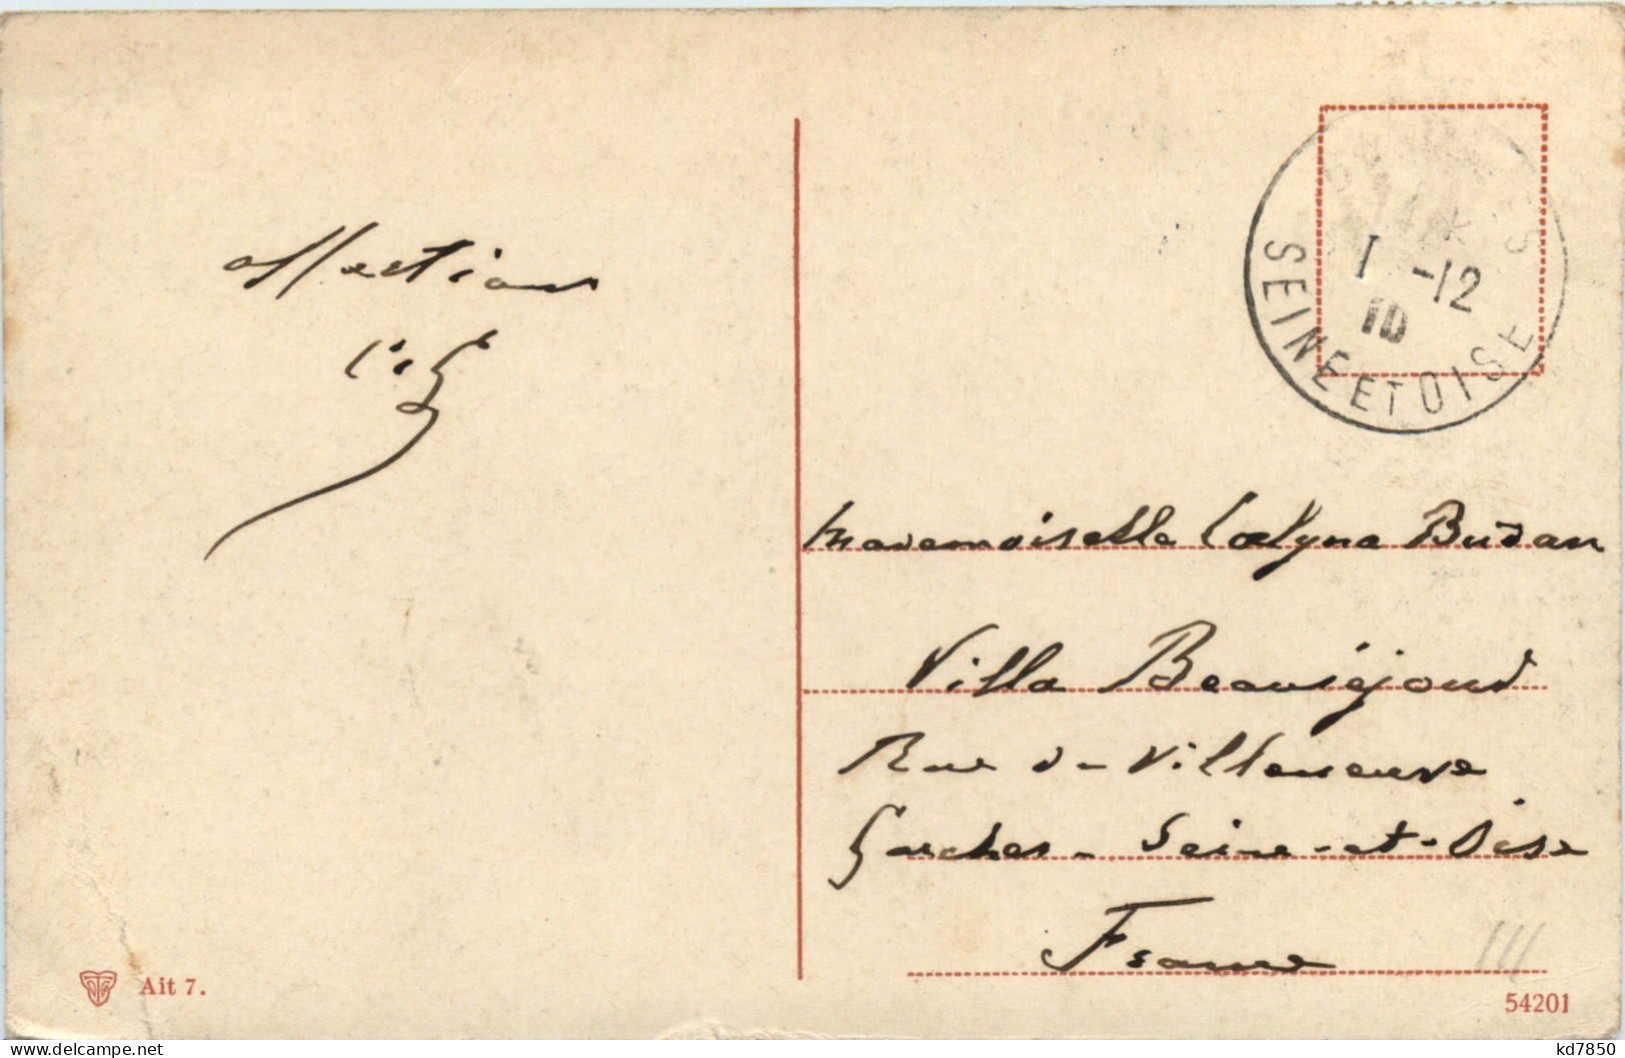 Affection
SEINE ET OISE
1 -12
10
Mademoiselle Coelyna Budan
Villa Beauséjour
Rue de Villeneuve
Garches - Seine-et-Oise
France
Ait 7.
54201
kd7850